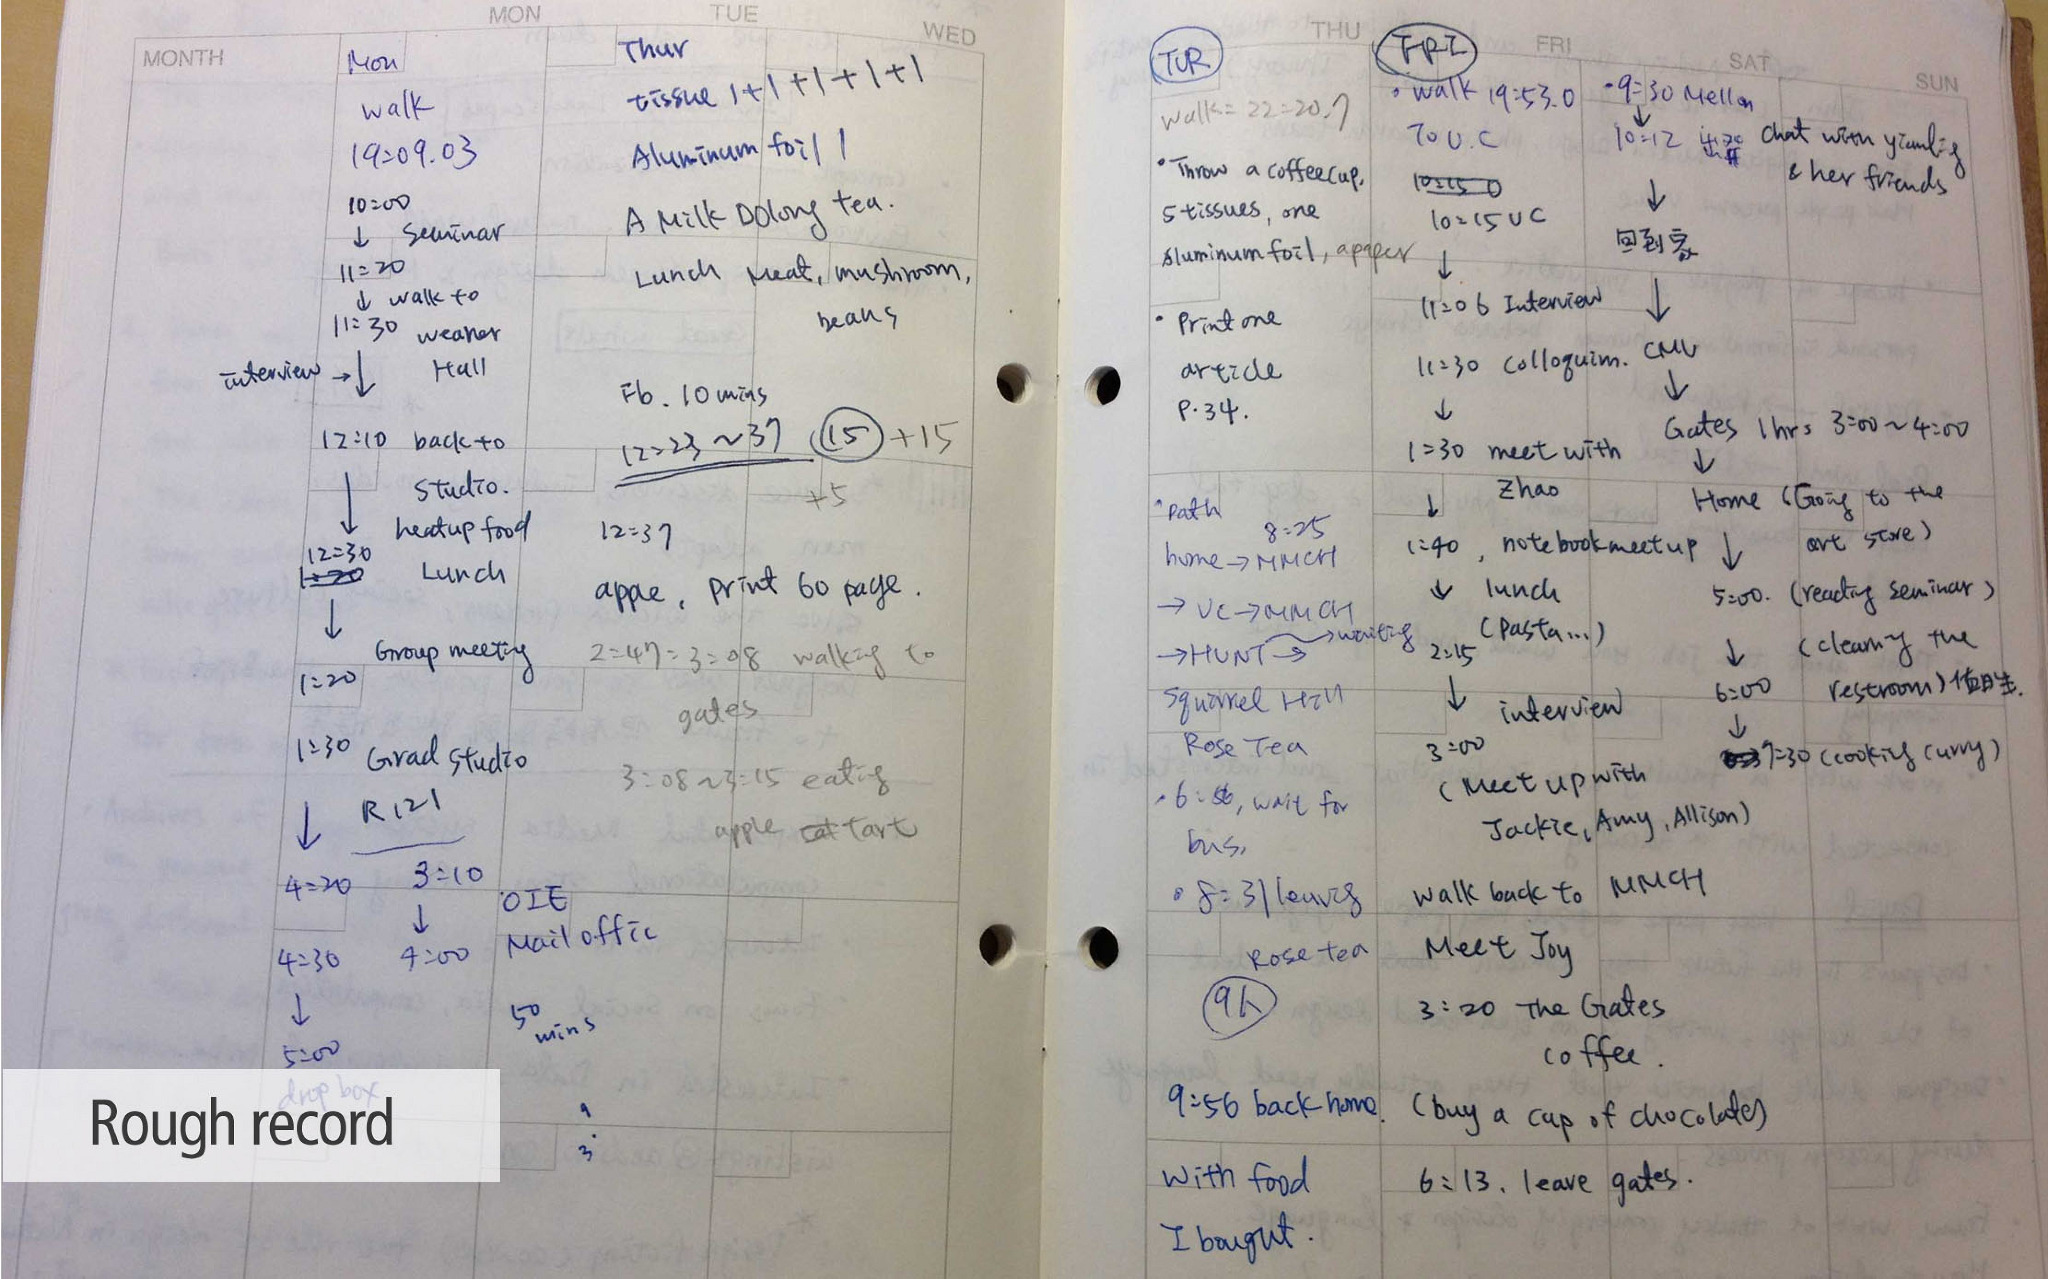 MONTH
MON
TUE
WED
Mon
walk
19:09.03
10:00
Seminar
11:20
walk to
11:30 weaner
Hall
interview →
12:10 back to
Studio.
heatup food
12:30
Lunch
Group meeting
1:20
1:30 Grad Studio
R121
4:20
3:10
4:30
4:00
5:00
drop box
OIE
Mail offic
50
mins
9
3
Thur
tissue 1+1+1+1+1
Aluminum foil 1
A Milk Oolong tea.
Lunch Meat, mushroom,
beans
Fb. 10 mins
12:23 ~ 37 15 +15
+5
12:37
apple, print 60 page.
2:47:3:08 walking to
gates
3:08~3:15 eating
apple tart
Rough record
THU
FRI
SAT
SUN
TUR
walk: 22:20.7
• Throw a coffee cup,
5 tissues, one
aluminum foil, a paper
• Print one
article
P.34.
• Path
8:25
home → MMCH
→ UC → MMCH
→ HUNT → waiting
Squirrel Hill
Rose Tea
• 6:56, wait for
bus.
• 8:31 leavig
Rose tea
9h
9:56 back home.
With food
I bought.
FRI
• walk 19:53.0
To U.C
10:15 UC
11:06 Interview
11:30 colloquim.
1:30 meet with
Zhao
1:40, notebook meet up
lunch
(Pasta...)
2:15
interview
3:00
(Meet up with
Jackie, Amy, Allison)
walk back to MMCH
Meet Joy
3:20 The Gates
coffee.
(buy a cup of chocolate)
6:13. leave gates.
• 9:30 Mellon
10:12 chat with
& her friends
回到家
CMU
Gates 1 hrs 3:00 ~ 4:00
Home (Going to the
art store)
5:00. (reading seminar)
(cleaning the
6:00 restroom) 值日生.
7:30 (cooking curry)